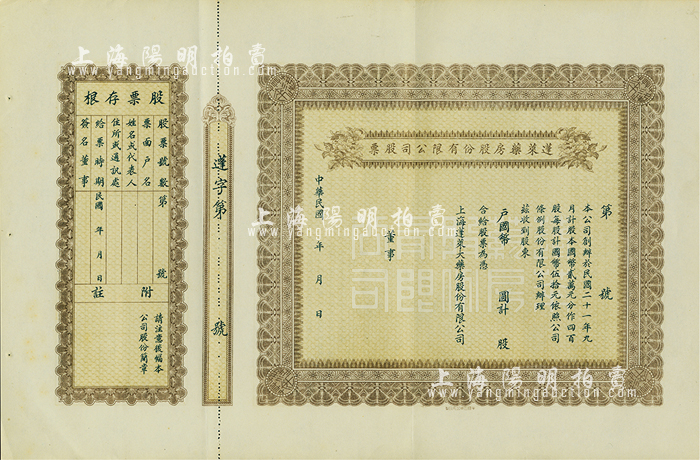 上海陽明拍賣
www.yangmingauction.com
上海陽明拍賣
www.yangmingauction.com
上海陽明拍賣
www.yangmingauction.com
蓬萊藥房股份有限公司股票
第　號
本公司創辦於民國二十一年九
月計股本國幣貳萬元分作四百
股每股計國幣伍拾元依照公司
條例股份有限公司辦理
茲收到股東
戶國幣　圓計　股
合給股票為憑
上海蓬萊大藥房股份有限公司
董事
中華民國　年　月　日
蓬字第　號
股票存根
股票號數　第　號
票面戶名
姓名或代表人
住所或通訊處
給票時期　民國　年　月　日
簽名董事
附註
請注意後幅本
公司股份簡章